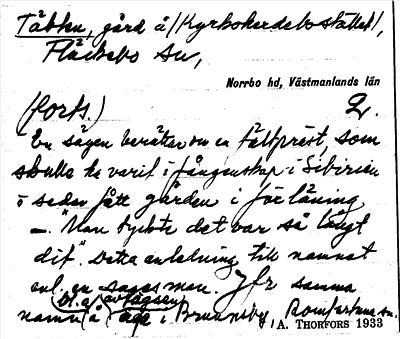 Täbbu, gård å //Kyrkoherdebostället/,
Fläckebo sn,
Norrbo hd, Västmanlands län
(forts.) 2.
En sägen berättar om en fältpräst, som
skulle ha varit i fångenskap i Sibirien
o sedan fått gården i förläning
–. "Man tyckte det var så långt
dit". Detta anledning till namnet
enl. en sagesman. Jfr samma
bl.a. avlägsen
namn (å äga i Brunnsby, Romfartuna sn.
A. THORFORS 1933